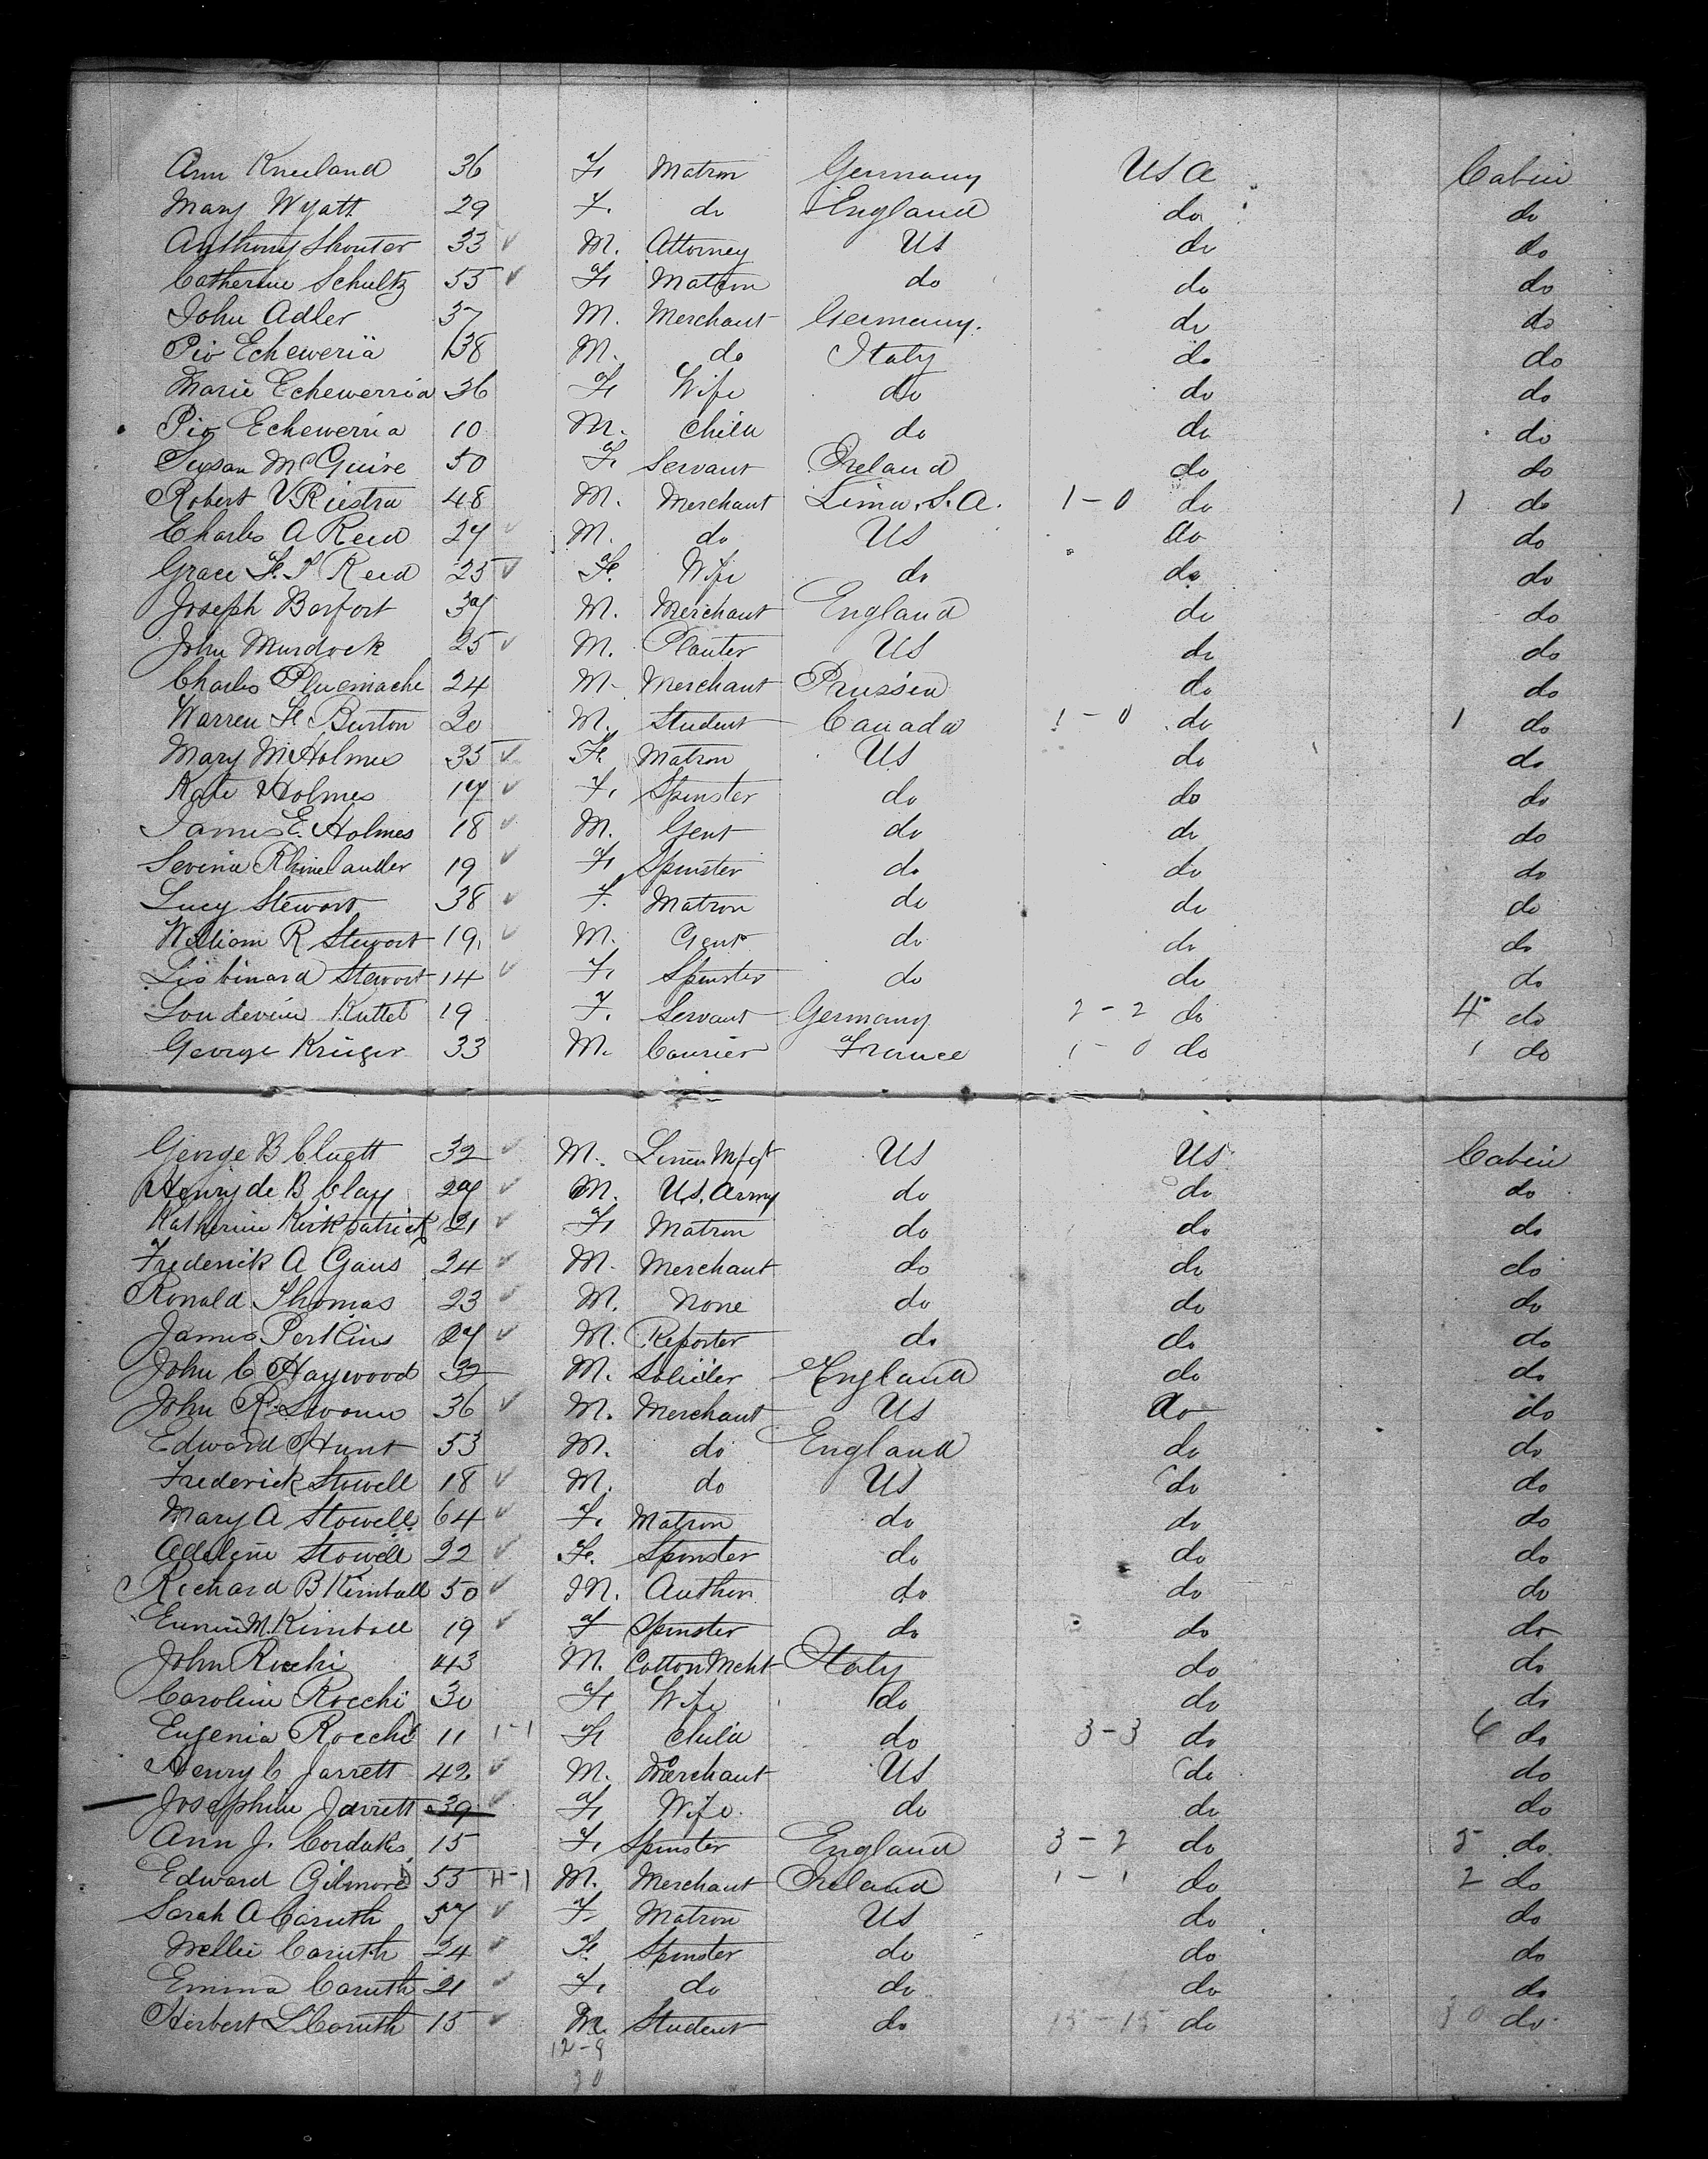 Ann Kneeland 36 F. Matron Germany USA Cabin
Mary Wyatt 29 F. do England do do
Anthony Shonter 33 ✓ M. Attorney US do do
Catherine Schultz 55 ✓ F. Matron do do do
John Adler 37 M. Merchant Germany. do do
Pio Echeweria 38 M. do Italy do do
Marie Echewerria 36 F. Wife do do do
Pio Echewerria 10 M. Child do do do
Susan McGuire 50 F. Servant Ireland do do
Robert V. Riestra 48 M. Merchant Lima. S.A. 1-0 do 1 do
Charles A Reed 27 ✓ M. do US do do
Grace F. S Reed 25 ✓ F. Wife do do do
Joseph Barfort 37 M. Merchant England do do
John Murdock 25 ✓ M. Planter US do do
Charles 24 M. Merchant Prussia do do
Warren F. Burton 20 M. Student Canada 1-0 do 1 do
Mary M Holmes 35 ✓ F. Matron US do do
Kate Holmes 17 ✓ F. Spinster do do do
James E. Holmes 18 ✓ M. Gent do do do
Serina Rhinelander 19 ✓ F. Spinster do do do
Lucy Stewart 38 ✓ F. Matron do do do
William R Stewart 19 ✓ M. Gent do do do
Stewart 14 ✓ F. Spinster do do do
19 F. Servant Germany 2-2 do 4 do
George Kruger 33 M. Courier France 1-0 do 1 do
George B Cluett 32 ✓ M. Linen Mfgt US US Cabin
Henry de B Clay 27 ✓ M. U.S. Army do do do
Katherine Kirkpatrick 21 ✓ F. Matron do do do
Frederick A Gans 24 ✓ M. Merchant do do do
Ronald Thomas 23 ✓ M. None do do do
James Perkins 27 ✓ M. Reporter do do do
John C Haywood 32 M. England do do
John R. Swann 36 ✓ M. Merchant US do do
Edward Hunt 53 M. do England do do
Frederick Stowell 18 ✓ M. do US do do
Mary A Stowell 64 ✓ F. Matron do do do
Adeline Stowell 22 ✓ F. Spinster do do do
Richard B Kimball 50 ✓ M. Author do do do
M. Kimball 19 ✓ F Spinster do do do
John Rocchi 43 M. Cotton Mcht Italy do do
Caroline Rocchi 30 F. Wife do do do
Eugenia Rocchi 11 1-1 F. Child do 3-3 do 6 do
Henry C Jarrett 42 ✓ M. Merchant US do do
Josephine Jarrett 39 ✓ F. Wife. do do do
Ann J. Cordukes 15 F. Spinster England 3-2 do 5 do
Edward Gilmore 55 H-1 M. Merchant Ireland 1-1 do 2 do
Sarah A Caruth 57 ✓ F. Matron US do do
Nellie Caruth 24 ✓ F. Spinster do do do
Emma Caruth 21 ✓ F. do do do do
Herbert S. Caruth 15 ✓ M. Student do 15-15 do 30 do
12-9